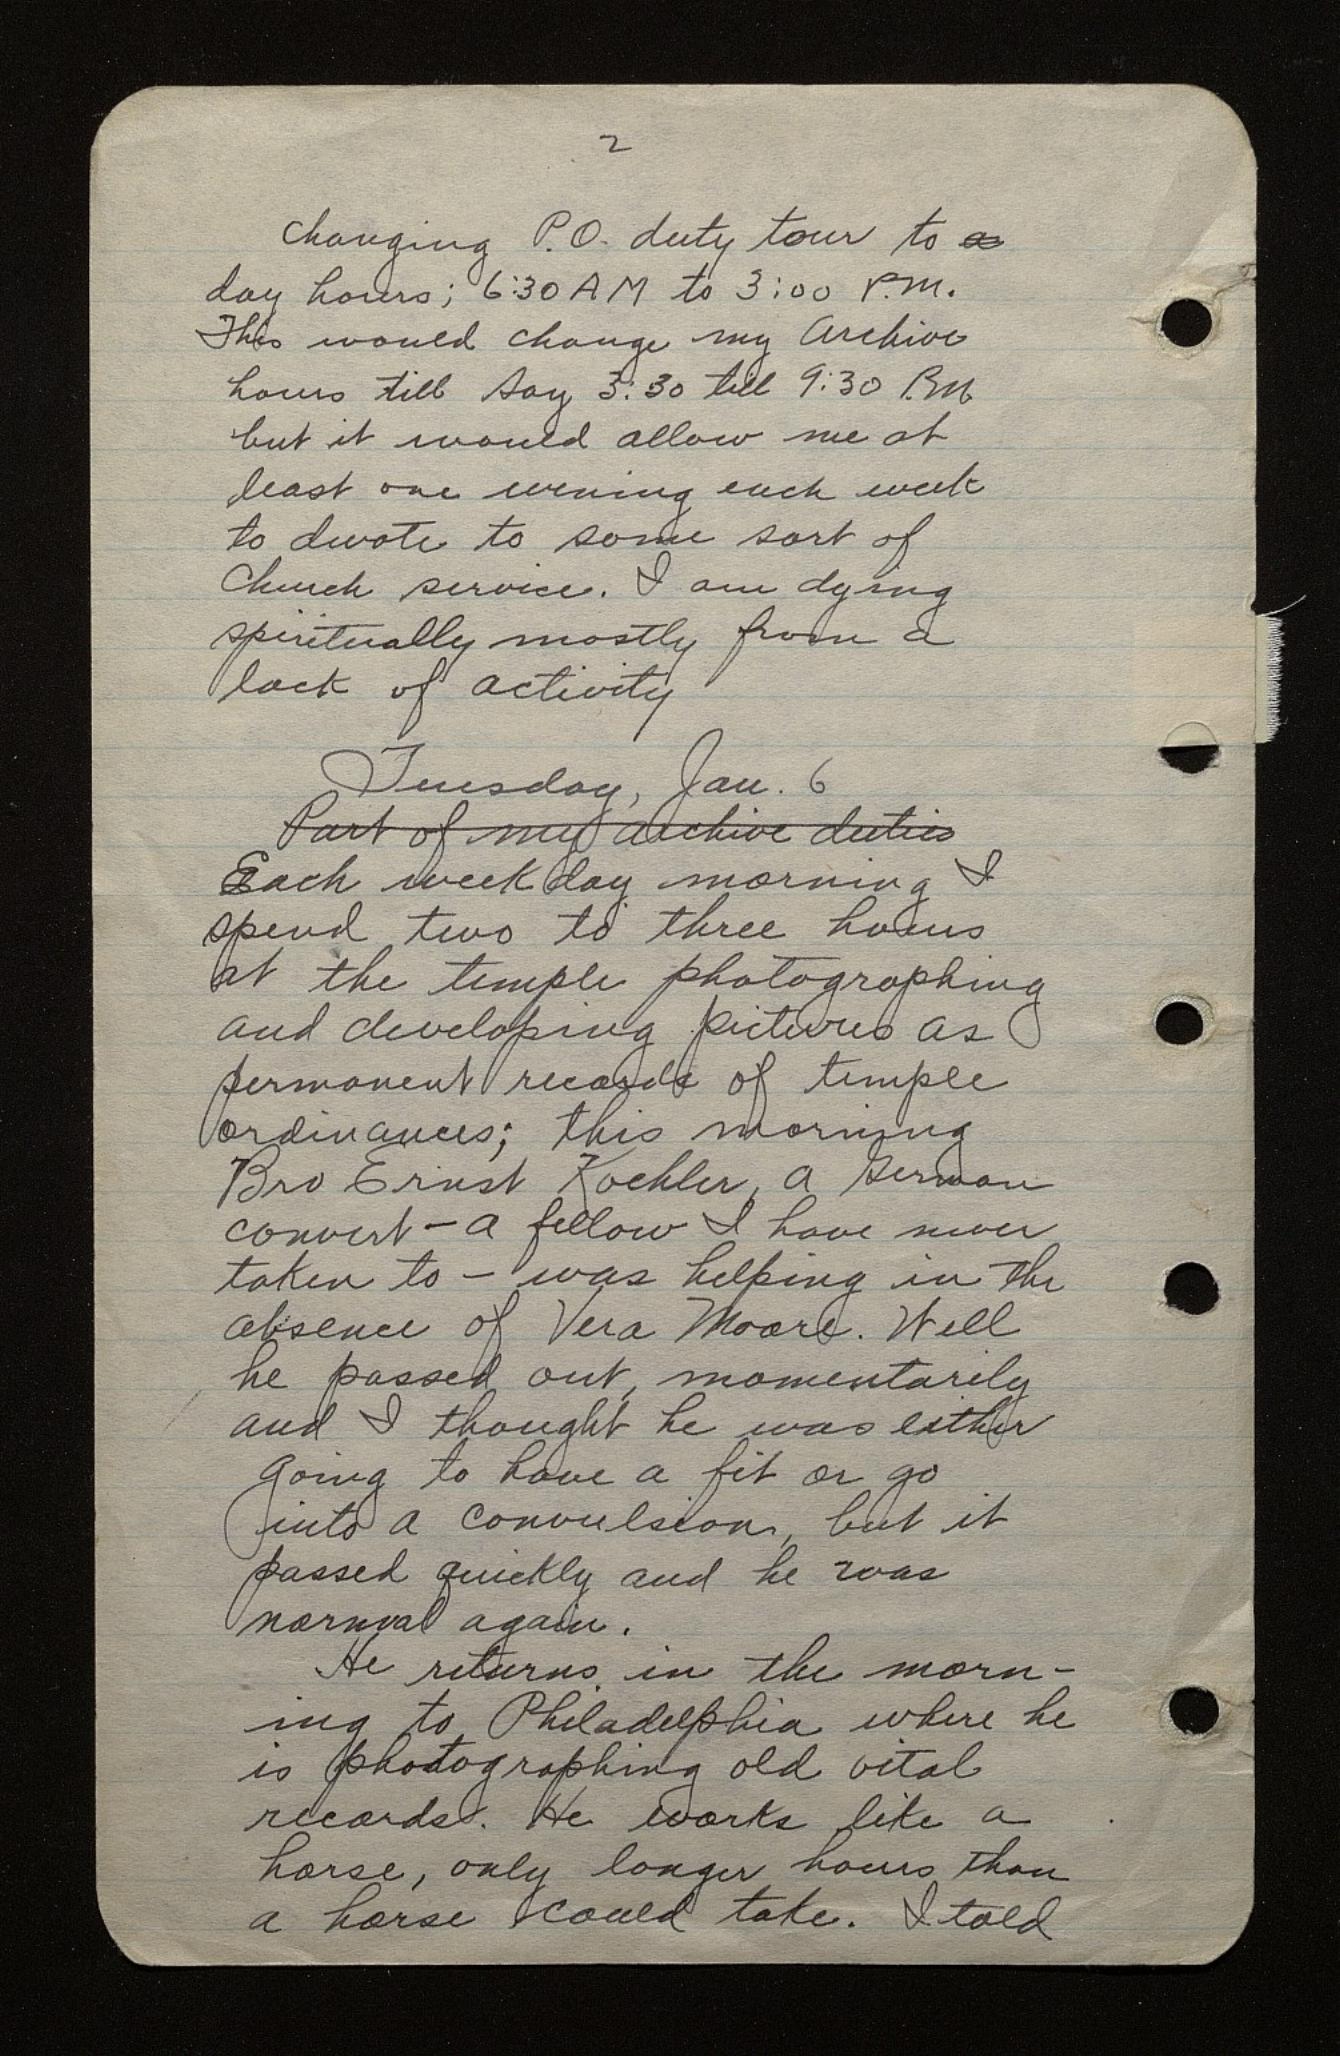 2
changing P.O. duty tour to a
day hours; 6:30 AM to 3:00 P.M.
This would change my Archive
hours till say 3:30 till 9:30 P.M.
but it would allow me at
least one evening each week
to devote to some sort of
Church service. I am dying
spiritually mostly from a
lack of activity
Tuesday, Jan. 6
Part of my archive duties
Each week day morning I
spend two to three hours
at the temple photographing
and developing pictures as
permanent records of temple
ordinances; this morning
Bro Ernst Koehler, a German
convert - a fellow I have never
taken to - was helping in the
absence of Vera Moore. Well
he passed out, momentarily
and I thought he was either
going to have a fit or go
into a convulsion, but it
passed quickly and he was
normal again.
He returns in the morn-
ing to Philadelphia where he
is photographing old vital
records. He works like a
horse, only longer hours than
a horse could take. I told